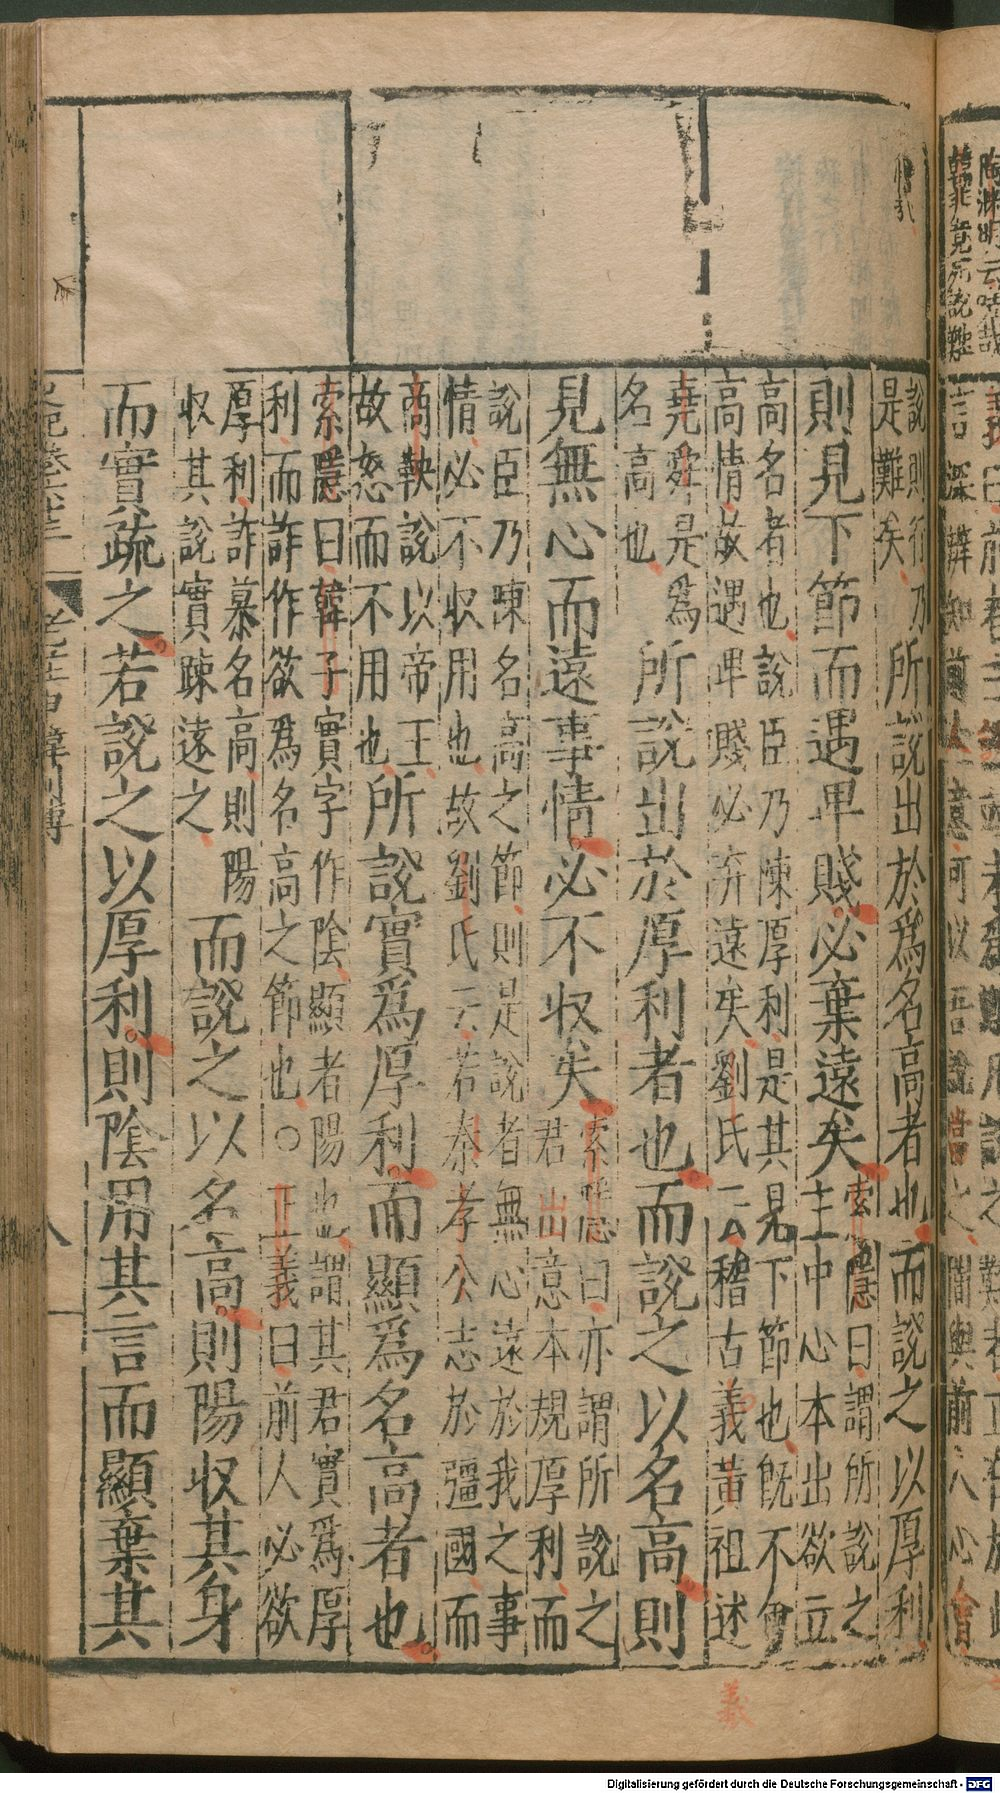 說則行乃
是難矣
所說出於爲名高者也而說之以厚利
則見下節而遇卑賤必棄遠矣
索隱曰謂所說之
主中心本出欲立
高名者也說臣乃陳厚利是其見下節也旣不會
高情故遇卑賤必弃遠矣劉氏云稽古羲黄祖述
堯舜是爲
名高也
所說出於厚利者也而說之以名高則
見無心而遠事情必不收矣
索隱曰亦謂所說之
君出意本規厚利而
說臣乃陳名高之節則是說者無心遠於我之事
情必不收用也故劉氏云若秦孝公志於彊國而
商鞅說以帝王
故怒而不用也
所說實爲厚利而顯爲名高者也
索隱曰韓子實字作隂顯者陽也謂其君實爲厚
利而詐作欲爲名高之節也○正義曰前人必欲
厚利詐慕名高則陽
收其說實踈遠之
而說之以名高則陽收其身
而實疏之若說之以厚利則陰用其言而顯棄其
史記卷六十三
老莊申韓列傳
八
義
Digitalisierung gefördert durch die Deutsche Forschungsgemeinschaft - DFG